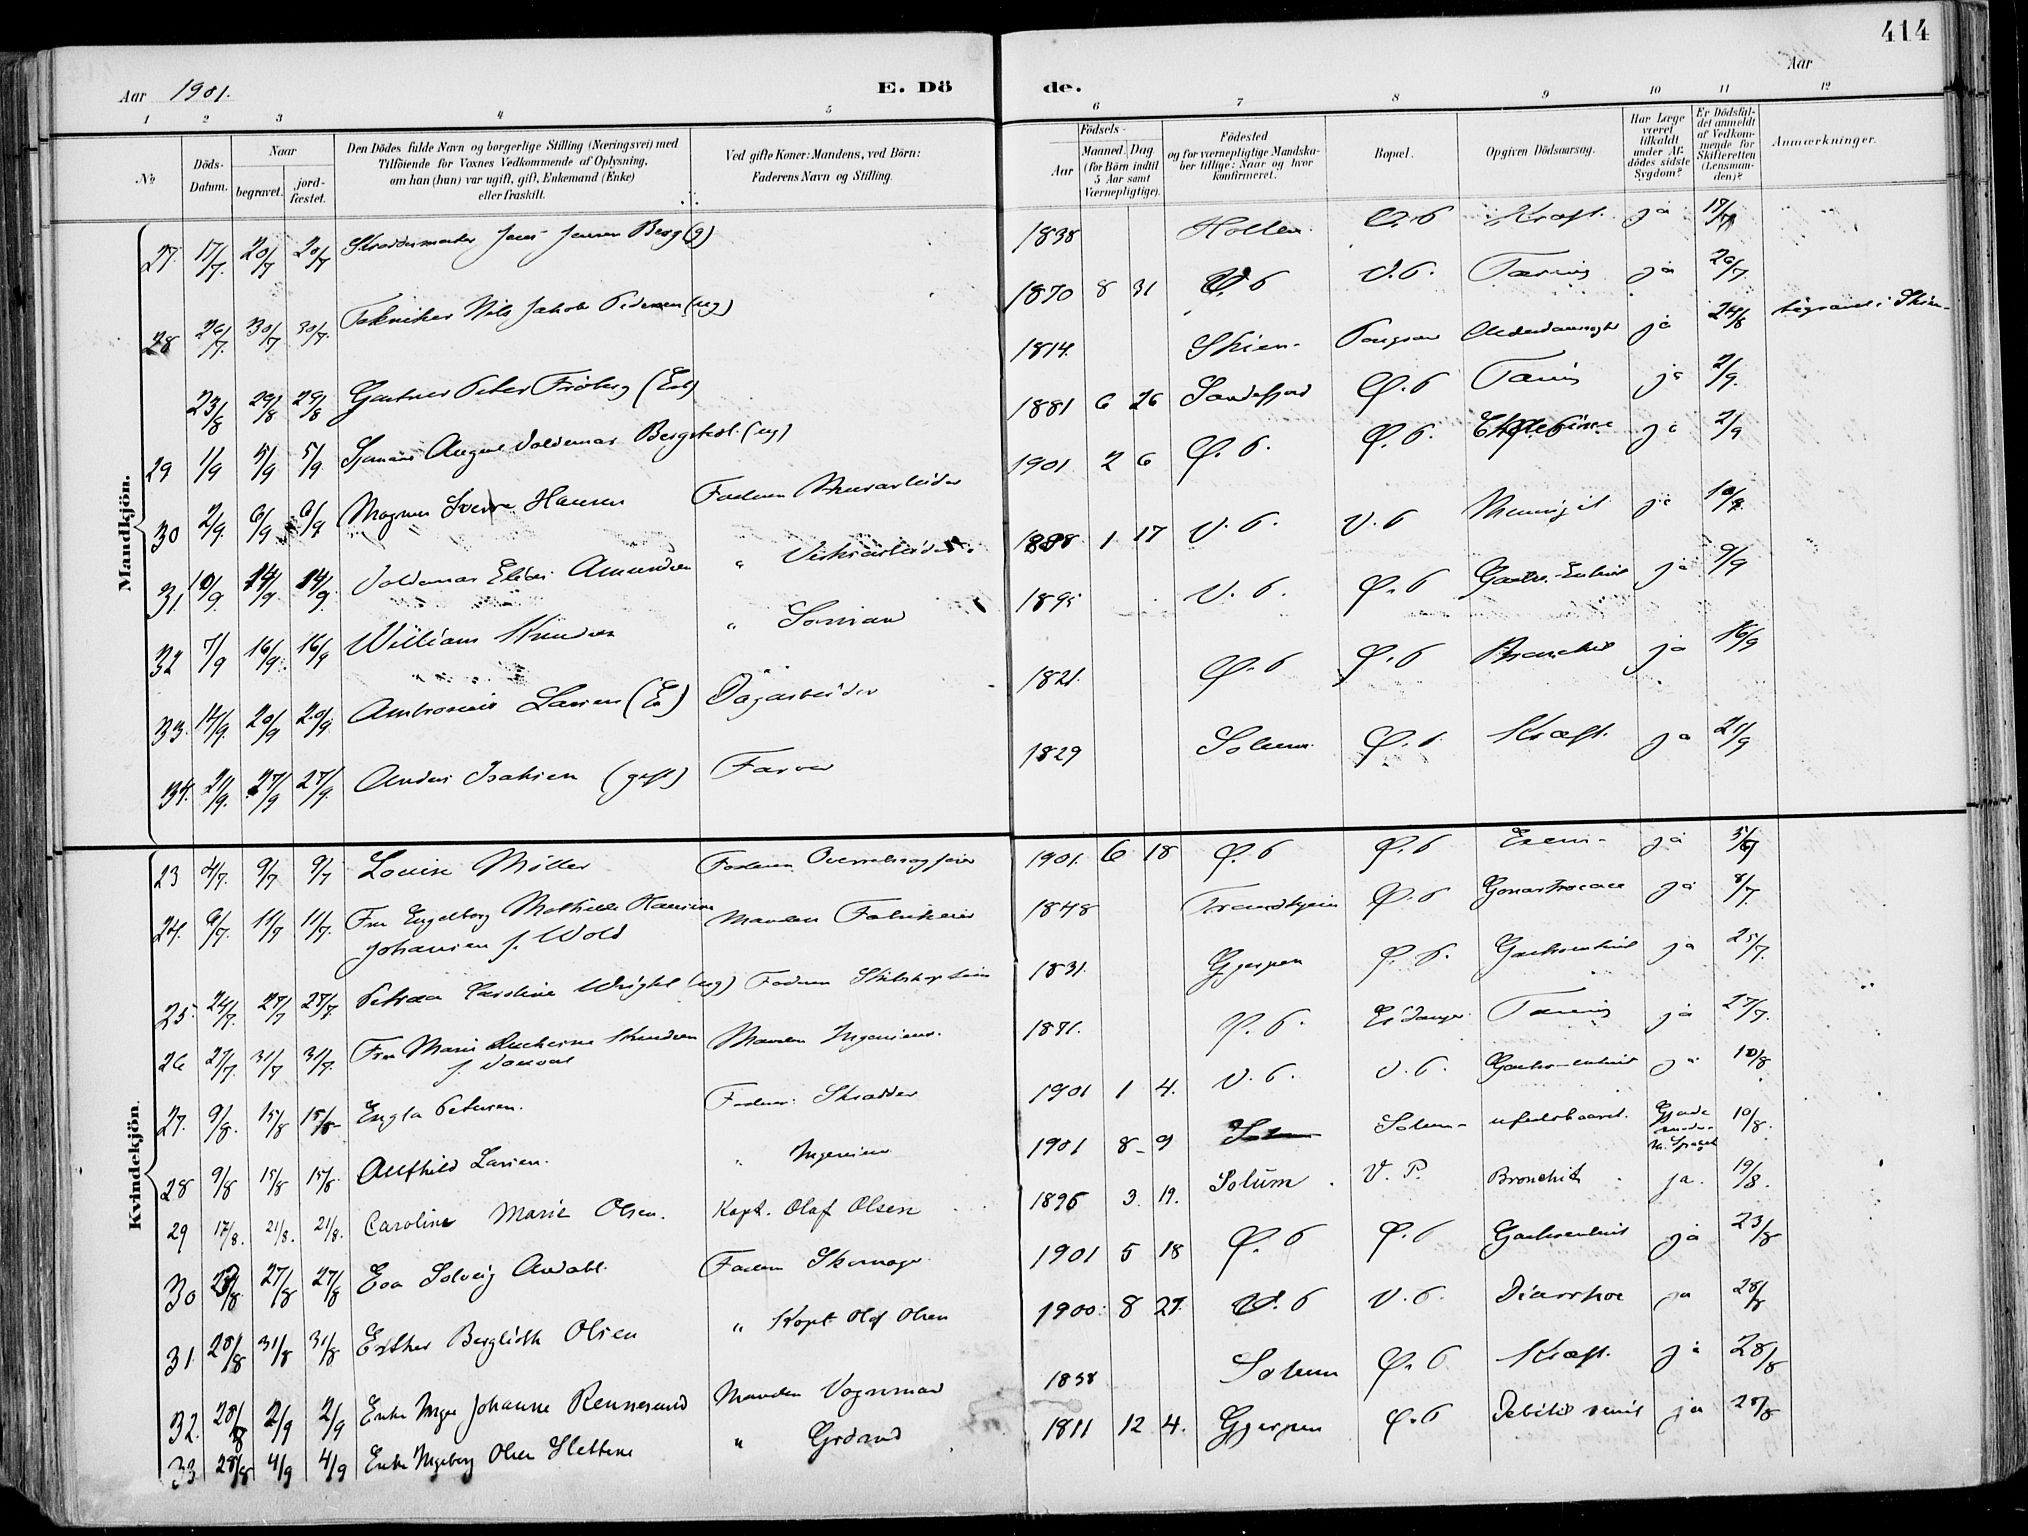 414
Aar 1901.
E. Döde.
Aar
1 2 3 4 5 6 7 8 9 10 11 12
No
Döds-Datum.
Naar
begravet.
jord-fæstet.
Den Dödes fulde Navn og borgerlige Stilling (Næringsvei) med
Tilföiende for Voxnes Vedkommende af Oplysning,
om han (hun) var ugift, gift, Enkemand (Enke)
eller fraskilt.
Ved gifte Koner: Mandens, ved Börn:
Faderens Navn og Stilling.
Födsels-
Aar
Maaned. Dag
(for Börn indtil
5 Aar samt
Værnepligtige).
Födested
og for værnepligtige Mandska-
ber tillige: Naar og hvor
konfirmeret.
Bopæl.
Opgiven Dödsaarsag.
Har Læge
været
tilkaldt
under Af-
dödes sidste
Sygdom?
Er Dödsfal-
det anmeldt
af Vedkom-
mende for
Skifteretten
(Lensman-
den)?
Anmærkninger.
Mandkjön.
27 17/7 20/7 20/7 Jens Jensen Berg (g) 1838 Holten Ø. P Kræft. ja 17/7
28 26/7 30/7 30/7 Tekniker Nils Jakob Pedersen (ug) 1870 8 31 V. P V. P. Tæring ja 26/7
23/8 29/8 29/8 Gartner Peter Fröberg (Em) 1814 Skien Alderdomssvaghed ja 24/8 begravet i Skien
29 1/9 5/9 5/9 Sjømand August Voldemar Bergstedt (ug) 1881 6 26 Sandefjord Ø. P Tæring ja 2/9
30 2/9 6/9 6/9 Magnus Sverre Hansen Faderen Murarbeider 1901 2 6 Ø. P. Ø. P. ja 2/9
31 10/9 14/9 14/9 Voldemar Amundsen " 1898 1 17 V. P. V. P Meningit ja 10/9
32 7/9 16/9 16/9 William Knudsen " Sömand 1895 V. P. Ø. P ja 9/9
33 14/9 20/9 20/9 Ambrosius Larsen (E) Dagarbeider 1821 Ø. P Ø. P Bronchit ja 16/9
34 21/9 27/9 27/9 Anders Isaksen (gift) Farver 1829 Solum Ø. P Kræft. ja 21/9
Kvindekjön.
23 4/7 9/7 9/7 Louise Möller Faderen 1901 6 18 Ø. P Ø. P ja 5/7
24 6/7 11/7 11/7 Fru Engelborg Mathilde Hansine Manden Fabrikeier 1848 Trondhjem Ø. P ja 8/7
Johansen f. Wold
25 24/7 28/7 28/7 Petrea Caroline Wright (ug) Faderen Skibskaptein 1831 Gjerpen Ø. P. ja 25/7
26 27/7 31/7 31/7 Fru Marie Knudsen Manden Ingeniør 1871 Ø. P. Eidanger Tæring ja 27/7
27 9/8 15/8 15/8 Engla Petersen. Faderen Skrædder 1901 1 4 V. P. V. P. ja 10/8
28 9/8 15/8 15/8 Alfhild Larsen. " Ingeniør 1901 8 9 Solum Solum ufuldbaaret. 10/8
29 17/8 21/8 21/8 Caroline Marie Olsen. Kapt. Olaf Olsen 1896 3 19. Solum V. P. Bronchit ja. 19/8
30 27/8 27/8 Eva Solveig Faderen Skomager 1901 5 18 Ø. P Ø. P ja 23/8
31 28/8 31/8 31/8 Esther Berglioth Olsen " Kapt. Olaf Olsen 1900 8 27 V. P V. P. Diarrhoe ja 28/8
32 28/8 2/9 2/9 Enke Inger Johanne Rennesund Manden Vognmand 1838 Solum Ø. P Kræft. ja 28/8
33 28/8 4/9 4/9 Enke Ingeborg Olsen Slettene " Grdmd 1811 12 4. Gjerpen Ø. P Debilitas senil ja 28/8